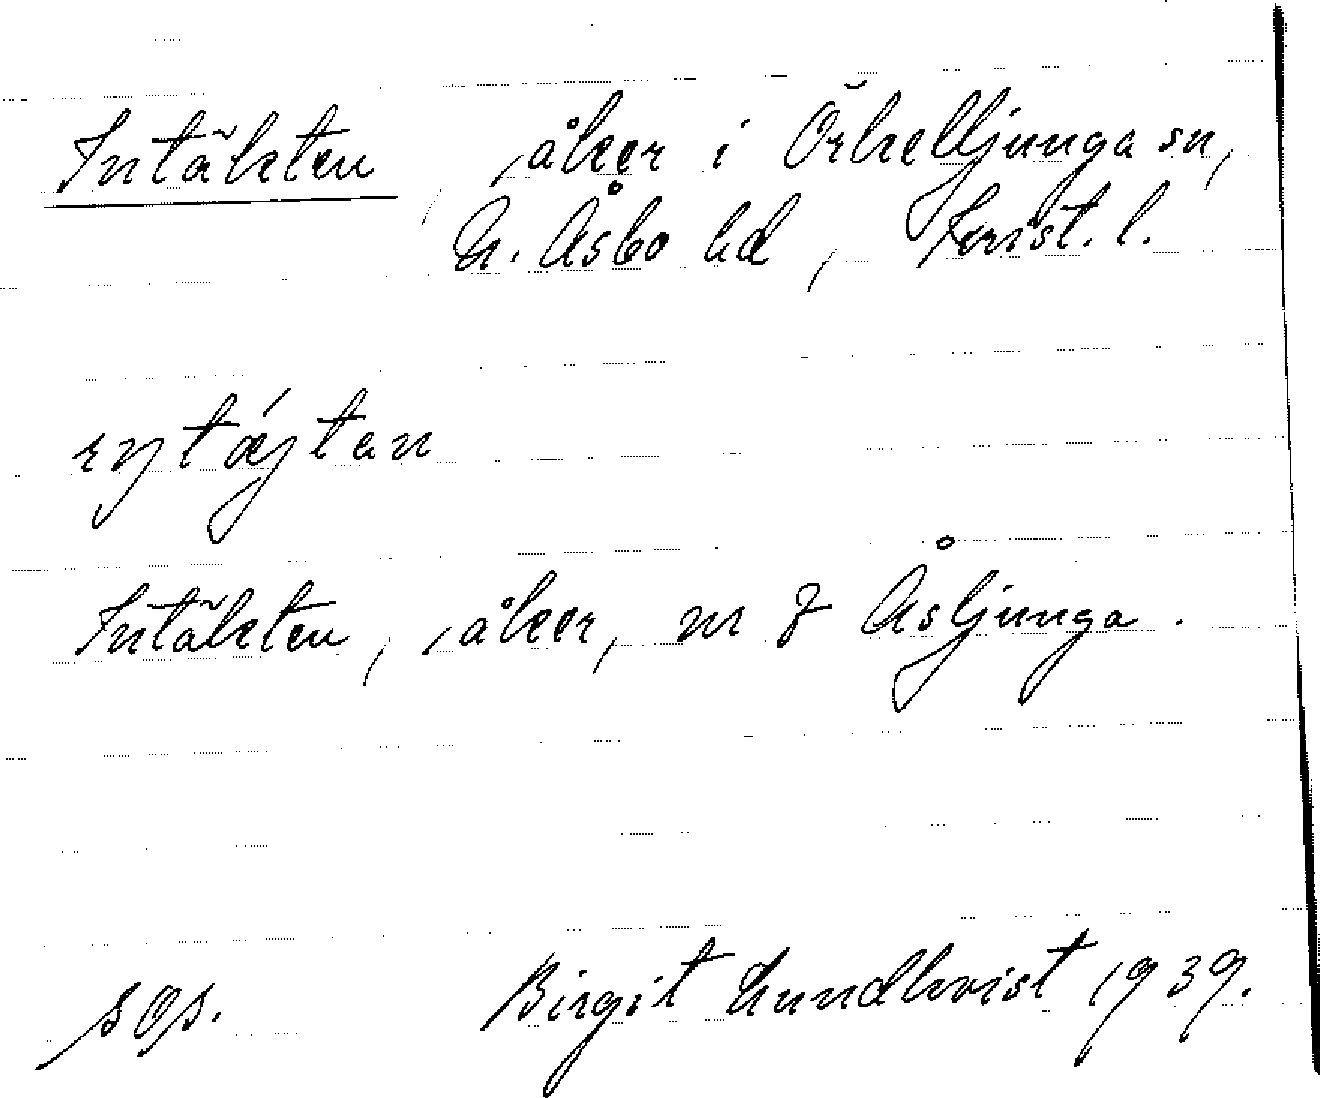 Intäkten, åker i Örkelljunga sn,
N. Åsbo hd, Krist. l.
Intäkten, åker, nr 7 Åsljunga.
sos. Birgit Lundkvist 1939.